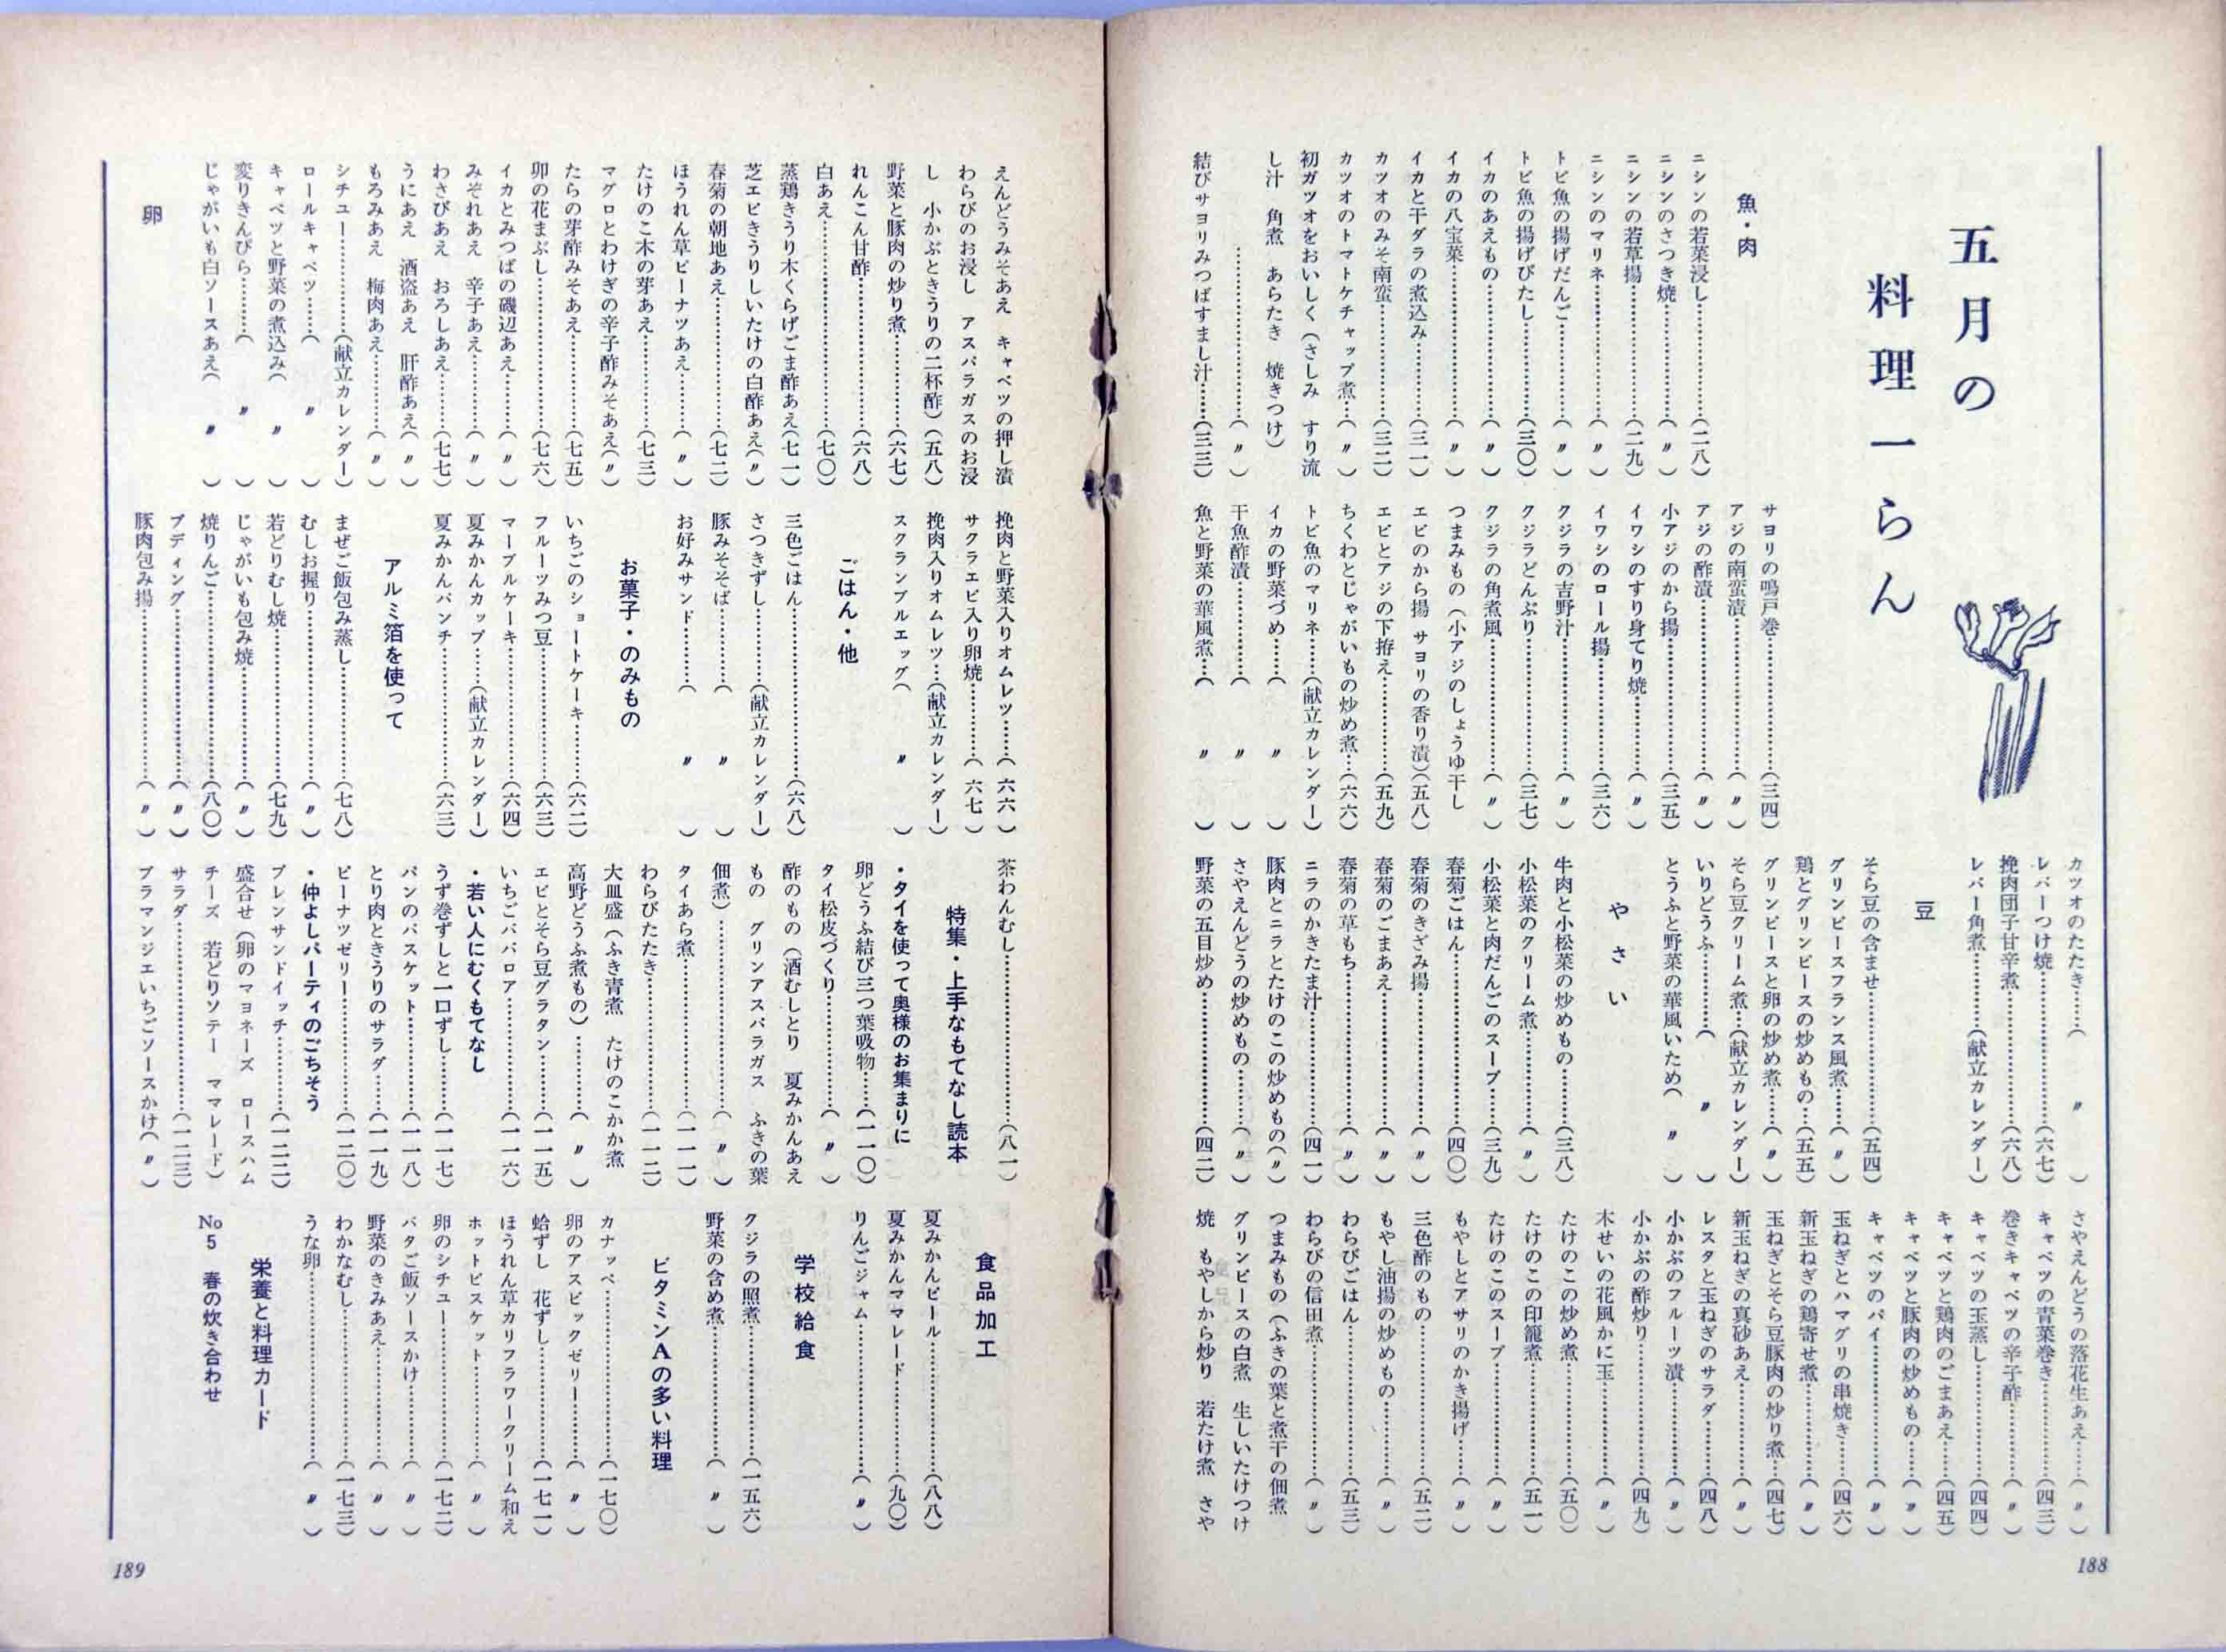 五月の
料理一らん
魚・肉
ニシンの若菜浸し…………(二八)
ニシンのさつき焼…………(〃)
ニシンの若草揚…………(二九)
ニシンのマリネ…………(〃)
トビ魚の揚げだんご…………(〃)
トビ魚の揚げびたし…………(三〇)
イカのあえもの…………(〃)
イカの八宝菜…………(〃)
イカと干ダラの煮込み…………(三一)
カツオのみそ南蛮…………(三二)
カツオのトマトケチャップ煮…(〃)
初ガツオをおいしく(さしみ すり流
し汁 角煮 あらたき 焼きつけ)
…………(〃)
結びサヨリみつばすまし汁……(三三)
サヨリの鳴戸巻…………(三四)
アジの南蛮漬…………(〃)
アジの酢漬…………(〃)
小アジのから揚…………(三五)
イワシのすり身てり焼…………(〃)
イワシのロール揚…………(三六)
クジラの吉野汁…………(〃)
クジラどんぶり…………(三七)
クジラの角煮風…………(〃)
つまみもの(小アジのしょうゆ干し
エビのから揚 サヨリの香り漬)(五八)
エビとアジの下拵え…………(五九)
ちくわとじゃがいもの炒め煮…(六六)
トビ魚のマリネ……(献立カレンダー)
イカの野菜づめ……(〃)
干魚酢漬…………(〃)
魚と野菜の華風煮…(〃)
カツオのたたき……(〃)
レバーつけ焼…………(六七)
挽肉団子甘辛煮…………(六八)
レバー角煮…………(献立カレンダー)
豆
そら豆の含ませ…………(五四)
グリンピースフランス風煮……(〃)
鶏とグリンピースの炒めもの…(五五)
グリンピースと卵の炒め煮……(〃)
そら豆クリーム煮…(献立カレンダー)
いりどうふ…………(〃)
とうふと野菜の華風いため(〃)
やさい
牛肉と小松菜の炒めもの………(三八)
小松菜のクリーム煮…………(〃)
小松菜と肉だんごのスープ……(三九)
春菊ごはん…………(四〇)
春菊のきざみ揚…………(〃)
春菊のごまあえ…………(〃)
春菊の草もち…………(〃)
ニラのかきたま汁…………(四一)
豚肉とニラとたけのこの炒めもの(〃)
さやえんどうの炒めもの………(〃)
野菜の五目炒め…………(四二)
さやえんどうの落花生あえ……(〃)
キャベツの青菜巻き…………(四三)
巻きキャベツの辛子酢…………(〃)
キャベツの玉蒸し…………(四四)
キャベツと鶏肉のごまあえ……(四五)
キャベツと豚肉の炒めもの……(〃)
キャベツのパイ…………(〃)
玉ねぎとハマグリの串焼き……(四六)
新玉ねぎの鶏寄せ煮…………(〃)
玉ねぎとそら豆豚肉の炒り煮…(四七)
新玉ねぎの真砂あえ…………(〃)
レスタと玉ねぎのサラダ………(四八)
小かぶのフルーツ漬…………(〃)
小かぶの酢炒り…………(四九)
木せいの花風かに玉…………(〃)
たけのこの炒め煮…………(五〇)
たけのこの印籠煮…………(五一)
たけのこのスープ…………(〃)
もやしとアサリのかき揚げ……(〃)
三色酢のもの…………(五二)
もやし油揚の炒めもの…………(〃)
わらびごはん…………(五三)
わらびの信田煮…………(〃)
つまみもの(ふきの葉と煮干の佃煮
グリンピースの白煮 生しいたけつけ
焼 もやしから炒り 若たけ煮 さや
188
えんどうみそあえ キャベツの押し漬
わらびのお浸し アスパラガスのお浸
し 小かぶときうりの二杯酢)(五八)
野菜と豚肉の炒り煮…………(六七)
れんこん甘酢…………(六八)
白あえ…………(七〇)
蒸鶏きうり木くらげごま酢あえ(七一)
芝エビきうりしいたけの白酢あえ(〃)
春菊の朝地あえ…………(七二)
ほうれん草ピーナツあえ………(〃)
たけのこ木の芽あえ…………(七三)
マグロとわけぎの辛子酢みそあえ(〃)
たらの芽酢みそあえ…………(七五)
卯の花まぶし…………(七六)
イカとみつばの磯辺あえ………(〃)
みぞれあえ 辛子あえ…………(〃)
わさびあえ おろしあえ………(七七)
うにあえ 酒盗あえ 肝酢あえ(〃)
もろみあえ 梅肉あえ…………(〃)
シチュー…………(献立カレンダー)
ロールキャベツ……(〃)
キャベツと野菜の煮込み(〃)
変りきんぴら………(〃)
じゃがいも白ソースあえ(〃)
卵
挽肉と野菜入りオムレツ………(六六)
サクラエビ入り卵焼…………(六七)
挽肉入りオムレツ…(献立カレンダー)
スクランブルエッグ(〃)
ごはん・他
三色ごはん…………(六八)
さつきずし…………(献立カレンダー)
豚みそそば………(〃)
お好みサンド………(〃)
お菓子・のみもの
いちごのショートケーキ………(六二)
フルーツみつ豆…………(六三)
マーブルケーキ…………(六四)
夏みかんカップ……(献立カレンダー)
夏みかんパンチ…………(六三)
アルミ箔を使って
まぜご飯包み蒸し…………(七八)
むしお握り…………(〃)
若どりむし焼…………(七九)
じゃがいも包み焼…………(〃)
焼りんご…………(八〇)
プディング…………(〃)
豚肉包み揚…………(〃)
茶わんむし…………(八一)
特集・上手なもてなし読本
・タイを使って奥様のお集まりに
卵どうふ結び三つ葉吸物……(一一〇)
タイ松皮づくり…………(〃)
酢のもの(酒むしとり 夏みかんあえ
もの グリンアスパラガス ふきの葉
佃煮)…………(〃)
タイあら煮…………(一一一)
わらびたたき…………(一一二)
大皿盛(ふき青煮 たけのこかか煮
高野どうふ煮もの)…………(〃)
エビとそら豆グラタン………(一一五)
いちごババロア…………(一一六)
・若い人にむくもてなし
うず巻ずしと一口ずし………(一一七)
パンのバスケット…………(一一八)
とり肉ときうりのサラダ……(一一九)
ピーナツゼリー…………(一二〇)
・仲よしパーティのごちそう
プレンサンドイッチ…………(一二二)
盛合せ(卵のマヨネーズ ロースハム
チーズ 若どりソテー ママレード)
サラダ…………(一二三)
ブラマンジエいちごソースかけ(〃)
食品加工
夏みかんピール…………(八八)
夏みかんママレード…………(九〇)
りんごジャム…………(〃)
学校給食
クジラの照煮…………(一五六)
野菜の含め煮…………(〃)
ビタミンAの多い料理
カナッペ…………(一七〇)
卵のアスピックゼリー………(〃)
蛤ずし 花ずし…………(一七一)
ほうれん草カリフラワークリーム和え
ホットビスケット…………(〃)
卵のシチュー…………(一七二)
バタご飯ソースかけ…………(〃)
野菜のきみあえ…………(〃)
わかなむし…………(一七三)
うな卵…………(〃)
栄養と料理カード
No5 春の炊き合わせ
189